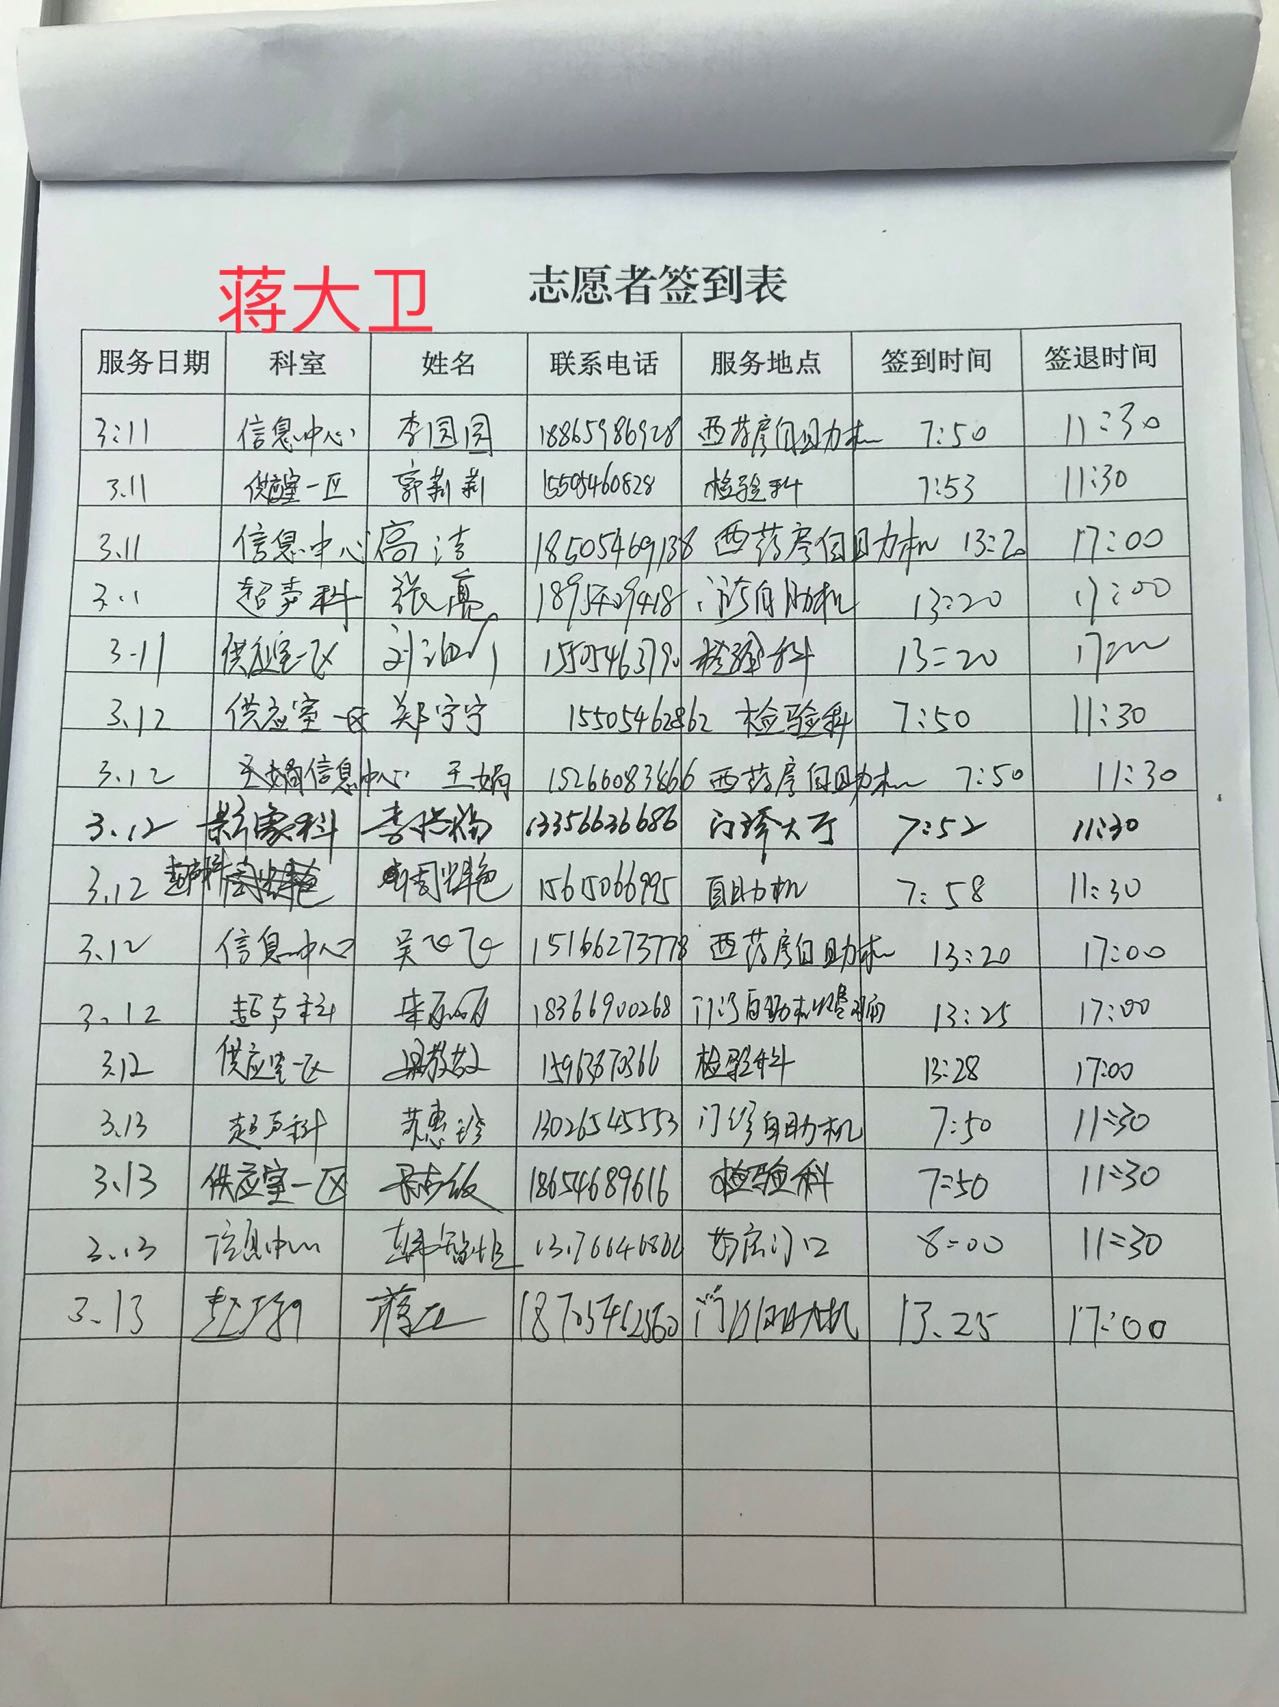 蒋大卫
志愿者签到表
服务日期 科室 姓名 联系电话 服务地点 签到时间 签退时间
3:11 信息中心 李圆圆 18865986928 西药房自助机 7:50 11:30
3.11 供应室一区 郭莉莉 15505460828 检验科 7:53 11:30
3.11 信息中心 高洁 18505469138 西药房自助机 13:20 17:00
3.11 超声科 张亮 自助机 13:20 17:00
3.11 供应室一区 检验科 13:20 17:00
3.12 供应室一区 郑宁宁 15505462862 检验科 7:50 11:30
3.12 王娟信息中心 王娟 15266083866 西药房自助机 7:50 11:30
3.12 影像科 13356636686 门诊大厅 7:52 11:30
3.12 超声科 15615066995 自助机 7:58 11:30
3.12 信息中心 吴飞飞 15166273778 西药房自助机 13:20 17:00
3.12 超声科 18366900268 门诊自助机 13:25 17:00
3.12 供应室一区 检验科 13:28 17:00
3.13 超声科 苏惠珍 13026545553 门诊自助机 7:50 11:30
3.13 供应室一区 18654689616 检验科 7:50 11:30
3.13 信息中心 药房门口 8:00 11:30
3.13 13.25 17:00